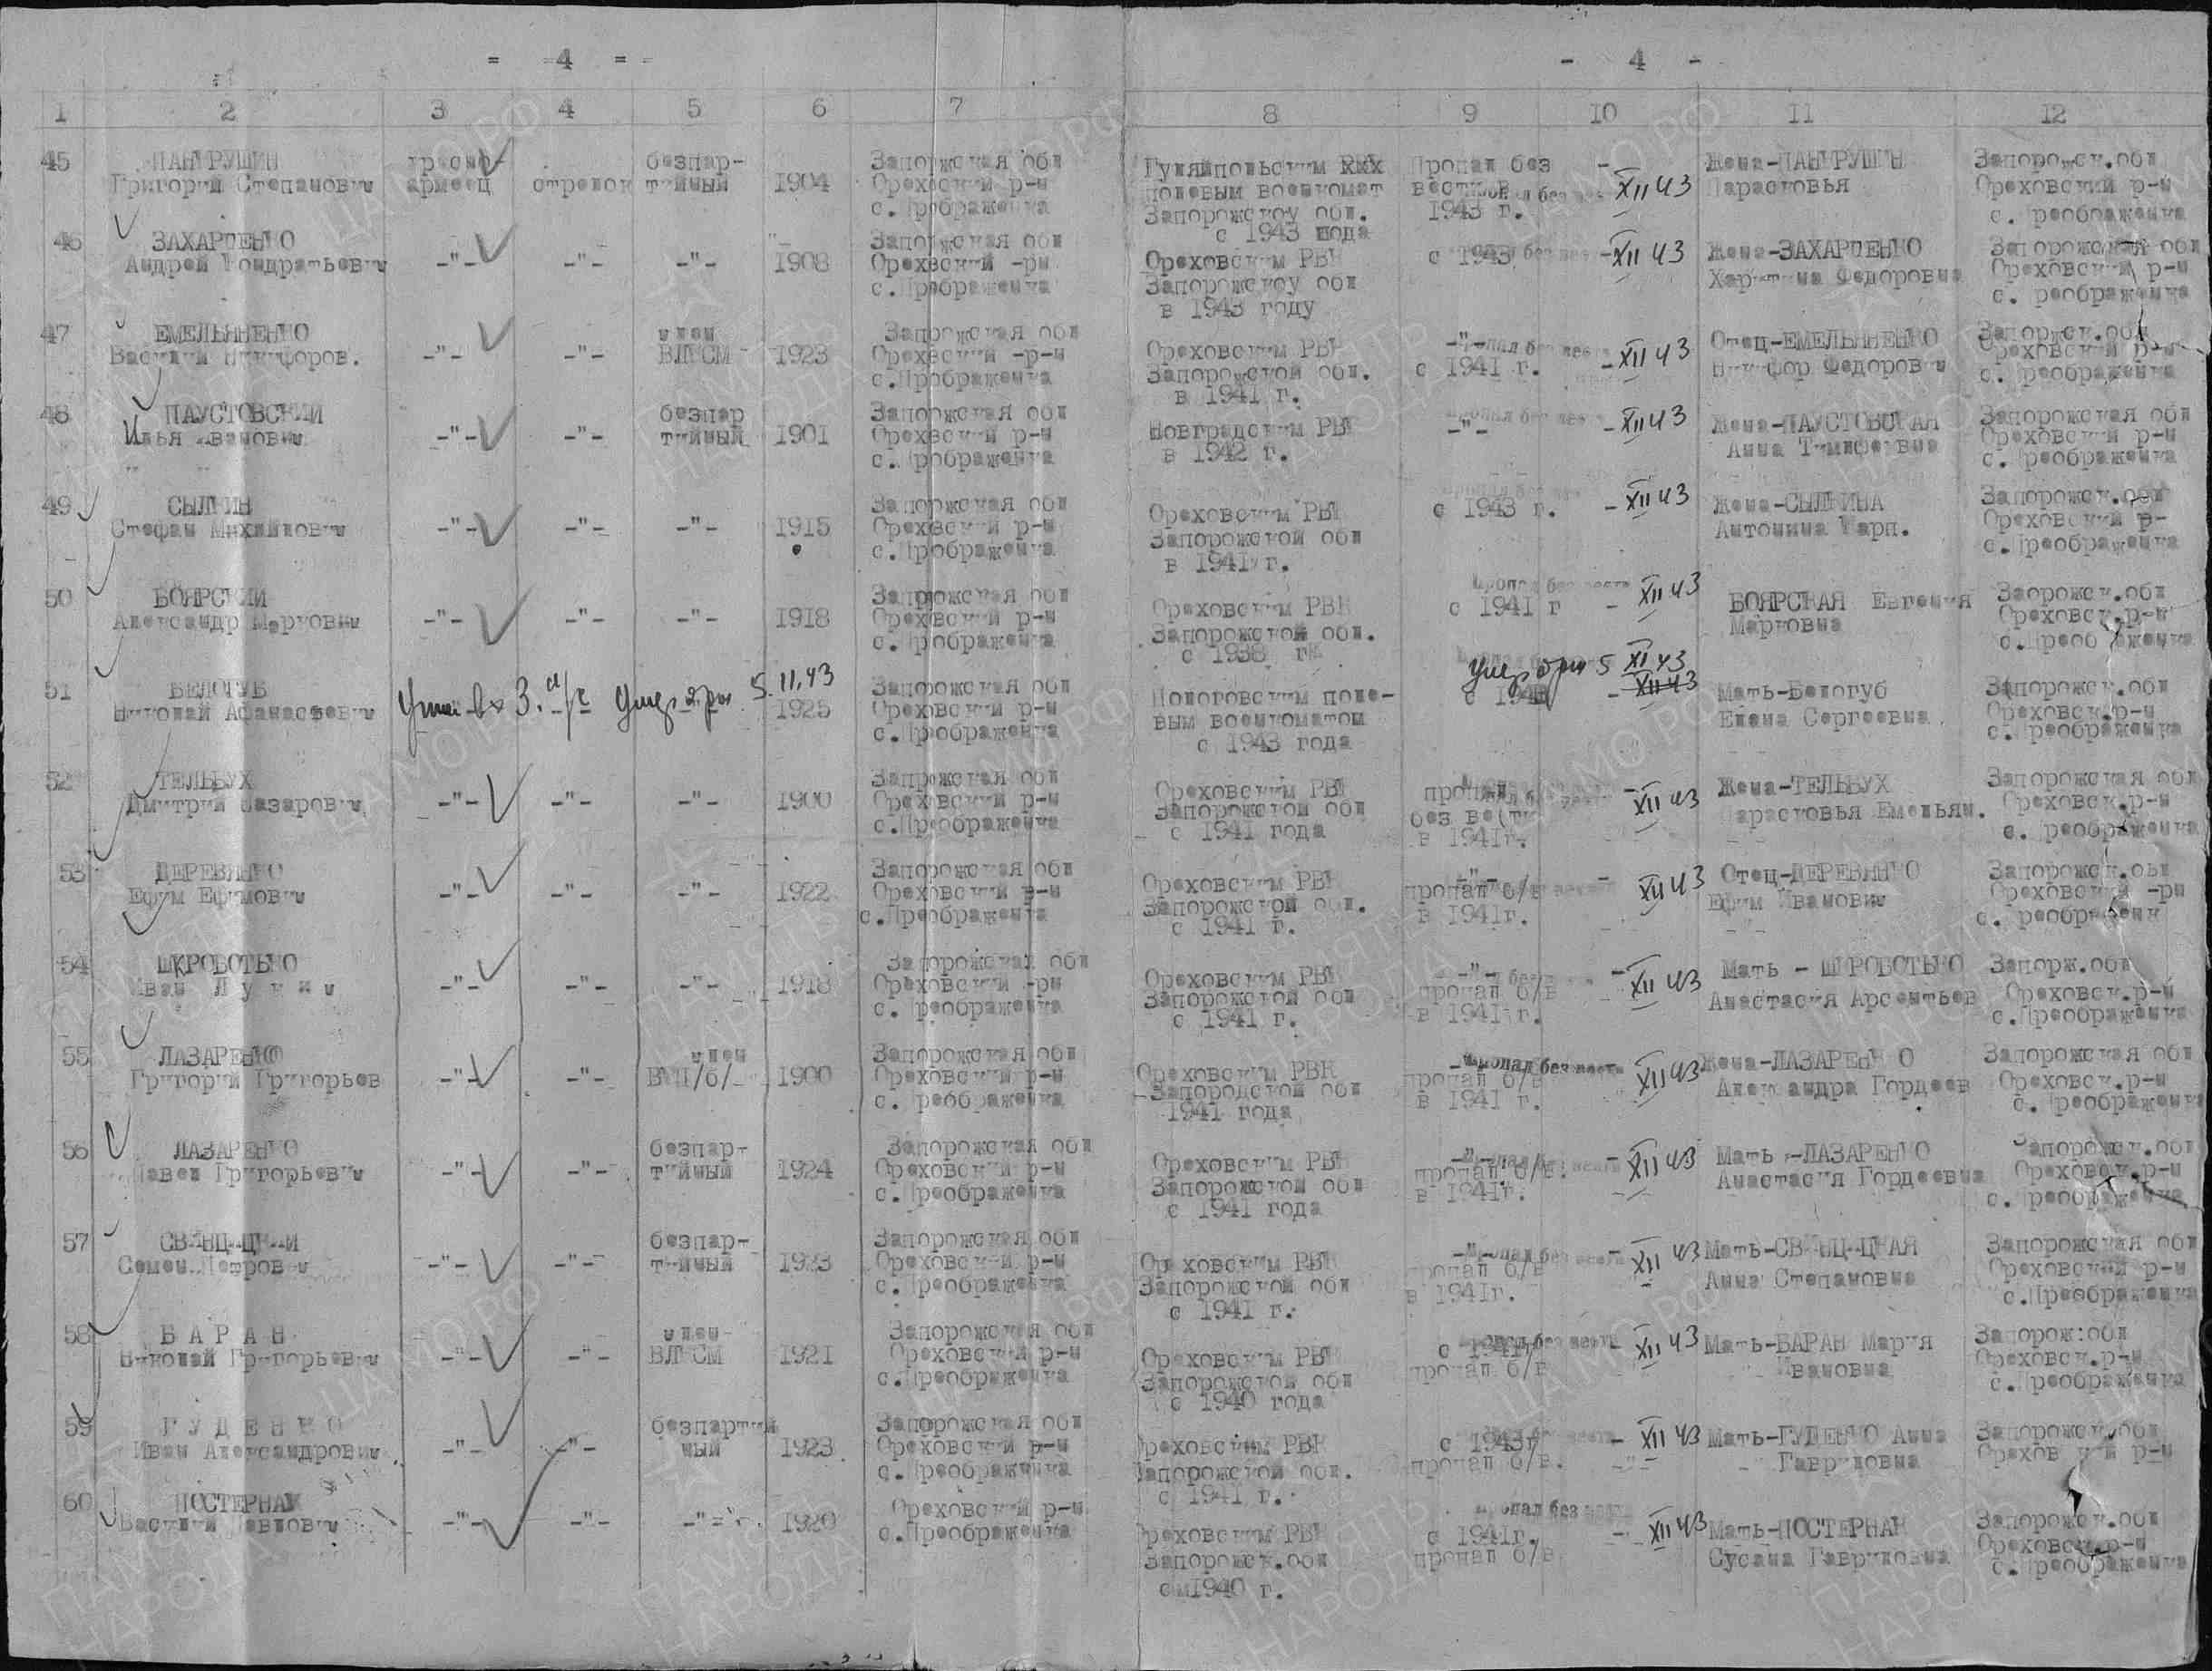 = 4 =
- 4 -
1 2 3 4 5 6 7 8 9 10 11 12
45 ПАНГРУШИН красно- безпар- Запоржская обл Гуляйпольским Пропал без - Жена-ПАНГРУШИН Запорожск.обл
Григорий Степанович армеец стрелок тийный 1904 Ореховский р-н полевым военкомат вести в XII 43 Парасковья Ореховский р-н
с.Прображенка Запорожскоу обл. 1943 г. с. реображенка
с 1943 года
46 ЗАХАРЧЕНКО Запоржская обл Жена-ЗАХАРЧЕНКО Запорожская обл
Андрей Кондратьевич -"- -"- -"- 1908 Ореховский -рн Ореховским РВК с 1943 - XII 43 Харитина Федоровна Ореховский р-н
с.Прображенка Запорожскоу обл с. реображенка
в 1943 году
47 ЕМЕЛЬЯНЕНКО член Запрожская обл -"- Отец-ЕМЕЛЬЯНЕНКО Запорожск.обл
Василий Никифоров. -"- -"- ВЛКСМ 1923 Ореховский -р-н Ореховским РВК с 1941 г. - XII 43 Никифор Федорович Ореховский р-н
с.Прображенка Запорожской обл. с. реображенка
в 1941 г.
48 ПАУСТОВСКИЙ безпар Запоржская обл Жена-ПАУСТОВСКАЯ Запорожская обл
Илья Иванович -"- -"- тийный 1901 Ореховский р-н Новградским РВК -"- - XII 43 Анна Ореховский р-н
с.Прображенка в 1942 г. с. реображенка
49 СЫЛКИН Запоржская обл Жена-СЫЛКИНА Запорожск.обл
Стефан Михайлович -"- -"- -"- 1915 Ореховский р-н Ореховским РВК с 1943 г. - XII 43 Антонина Карп. Ореховский р-
с.Прображенка Запорожской обл с.Преображенка
в 1941 г.
50 БОЯРСКИЙ Запрожская обл пропал без вести БОЯРСКАЯ Евгения Заорожск.обл
Александр Маркович -"- -"- -"- 1918 Ореховский р-н Ореховским РВК с 1941 г - XII 43 Марковна Ореховск.р-н
с.Прображенка Запорожской обл. с.Преображенка
с 1938 г
51 БЕЛОГУБ 5.11.43 Запорожская обл Пологовским поле- умер 5 XI 43 Мать-Белогуб Запорожск.обл
Николай Афанасьевич умер 1925 Ореховский р-н вым военкоматом с 194 - XII 43 Елена Сергеевна Ореховск.р-н
с.Прображенка с 1943 года с. реображенка
52 ТЕЛЬБУХ Запрожская обл Ореховским РВК пропал Жена-ТЕЛЬБУХ Запорожская обл
Дмитрий Лазарович -"- -"- -"- 1900 Ореховский р-н Запорожской обл без вести XII 43 Парасковья Емельян. Ореховск.р-н
с.Преображенка с 1941 года в 1941г. с. реображенка
53 ДЕРЕВЯНКО Запорожская обл Ореховским РВК -"- Отец-ДЕРЕВЯНКО Запорожск.обл
Ефим Ефимович -"- -"- -"- 1922 Ореховский р-н Запорожской обл. пропал б/в XII 43 Ефим Иванович Ореховский -рн
с.Преображенка с 1941 г. в 1941г. с. реображенк
54 ШКРОБОТЬКО Запорожская обл Ореховским РВК -"- Мать - ШКРОБОТЬКО Запорж.обл
Иван Лукич -"- -"- -"- 1918 Ореховский -рн Запорожской обл пропал б/в - XII 43 Анастасия Арсентьев Ореховск.р-н
с. реображенка с 1941 г. в 1941 г. с.Преображенка
55 ЛАЗАРЕНКО член Запорожская обл Ореховским РВК пропал без вести Жена-ЛАЗАРЕНКО Запорожская обл
Григорий Григорьев -"- -"- ВКП/б/- 1900 Ореховский р-н Запородской обл пропал б/в XII 43 Александра Гордеев Ореховск.р-н
с. реображенка 1941 года в 1941 г. с. Преображенка
56 ЛАЗАРЕНКО безпар- Запорожская обл Ореховским РВК -"- Мать -ЛАЗАРЕНКО Запорожск.обл
Павел Григорьевич -"- -"- тийный 1924 Ореховский р-н Запорожской обл пропал б/в. - XII 43 Анастасия Гордеевна Ореховск.р-н
с.Преображенка с 1941 года в 1941г. с. реображенка
57 СВИНЦИЦКИЙ безпар- Запорожская обл Ореховским РВК -"- Мать-СВИНЦИЦКАЯ Запорожская обл
Семен Петрович -"- -"- тийный 1923 Ореховский р-н Запорожской обл пропал б/в - XII 43 Анна Степановна Ореховский р-н
с.Преображенка с 1941 г. в 1941г. с.Преображенка
58 БАРАН член Запорожская обл с 1941г Мать-БАРАН Мария Запорож.обл
Николай Григорьевич -"- -"- ВЛКСМ 1921 Ореховский р-н Ореховским РВК пропал б/в XII 43 Ивановна Ореховск.р-н
с.Преображенка Запорожской обл с.Преображенка
с 1940 года
59 ГУДЕНКО безпартий Запорожская обл Ореховским РВК с 1943г - XII 43 Мать-ГУДЕНКО Анна Запорожск.обл
Иван Александрович -"- -"- ный 1923 Ореховский р-н Запорожской обл. пропал б/в. Гавриловна Орехов кий р-н
с.Преображенка с 1941 г.
60 ПОСТЕРНАК Ореховский р-н пропал без вести Мать-ПОСТЕРНАК Запорожск.обл
Василий Павлович -"- -"- -"- 1920 с.Преображенка Ореховским РВК с 1941г. - XII 43 Сусана Гавриловна Ореховск.р-н
Запорожск.обл пропал б/в с.Преображенка
с 1940 г.